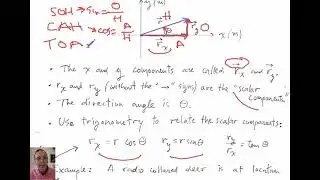 SOH → sin = O/H
y(m)
CAH → cos = A/H
H r⃗ r⃗y O
θ
r⃗x A x(m)
TOA
• The x and y components are called r⃗x and r⃗y.
• rx and ry (without the "→" signs) are the "scalar components"
• The direction angle is θ.
• Use trigonometry to relate the scalar components:
rx = r cosθ ry = r sinθ ry/rx = tanθ
xample: A radio collared deer is at location